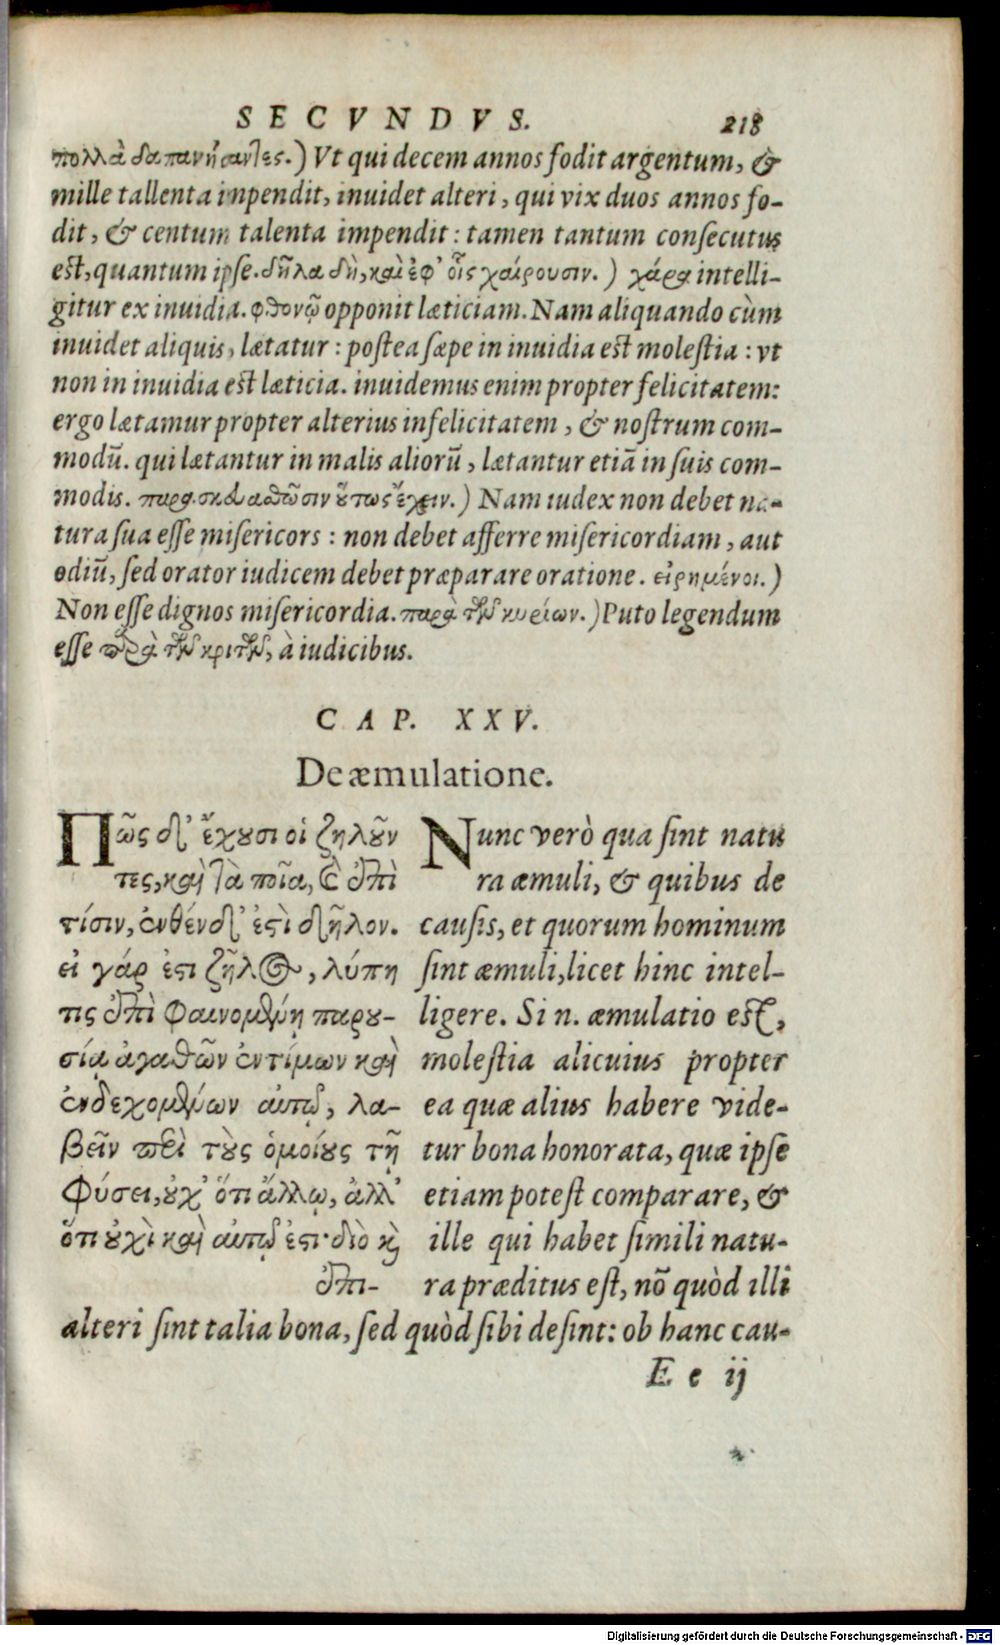 SECVNDVS. 218
πολλὰ δαπανήσαντες.) Vt qui decem annos fodit argentum, &
mille tallenta impendit, inuidet alteri, qui vix duos annos fo-
dit, & centum talenta impendit: tamen tantum consecutus
est, quantum ipse. δῆλα δὴ, καὶ ἐφ' οἷς χαίρουσιν.) χάρα intelli-
gitur ex inuidia. φθονῷ opponit læticiam. Nam aliquando cùm
inuidet aliquis, lætatur: postea sæpe in inuidia est molestia: vt
non in inuidia est læticia. inuidemus enim propter felicitatem:
ergo lætamur propter alterius infelicitatem, & nostrum com-
modū. qui lætantur in malis aliorū, lætantur etiā in suis com-
modis. παρασκευασθῶσιν οὕτως ἔχειν.) Nam iudex non debet na-
tura sua esse misericors: non debet afferre misericordiam, aut
odiū, sed orator iudicem debet præparare oratione. εἰρημένοι.)
Non esse dignos misericordia. παρὰ τῶν κυρίων.) Puto legendum
esse παρὰ τῶν κριτῶν, à iudicibus.
CAP. XXV.
De æmulatione.
Πῶς δ' ἔχουσι οἱ ζηλοῦν
τες, καὶ τὰ ποῖα, καὶ ἐπὶ
τίσιν, ἐνθένδ' ἐστὶ δῆλον.
εἰ γάρ ἐστι ζῆλος, λύπη
τις ἐπὶ φαινομένη παρου-
σίᾳ ἀγαθῶν ἐντίμων καὶ
ἐνδεχομένων αὐτῷ, λα-
βεῖν περὶ τοὺς ὁμοίους τῇ
φύσει, οὐχ' ὅτι ἄλλῳ, ἀλλ'
ὅτι οὐχὶ καὶ αὐτῷ ἐστι· διὸ καὶ
ἐπι-
Nunc verò qua sint natu
ra æmuli, & quibus de
causis, et quorum hominum
sint æmuli, licet hinc intel-
ligere. Si n. æmulatio est,
molestia alicuius propter
ea quæ alius habere vide-
tur bona honorata, quæ ipse
etiam potest comparare, &
ille qui habet simili natu-
ra præditus est, nō quòd illi
alteri sint talia bona, sed quòd sibi desint: ob hanc cau-
E e ij
Digitalisierung gefördert durch die Deutsche Forschungsgemeinschaft - DFG